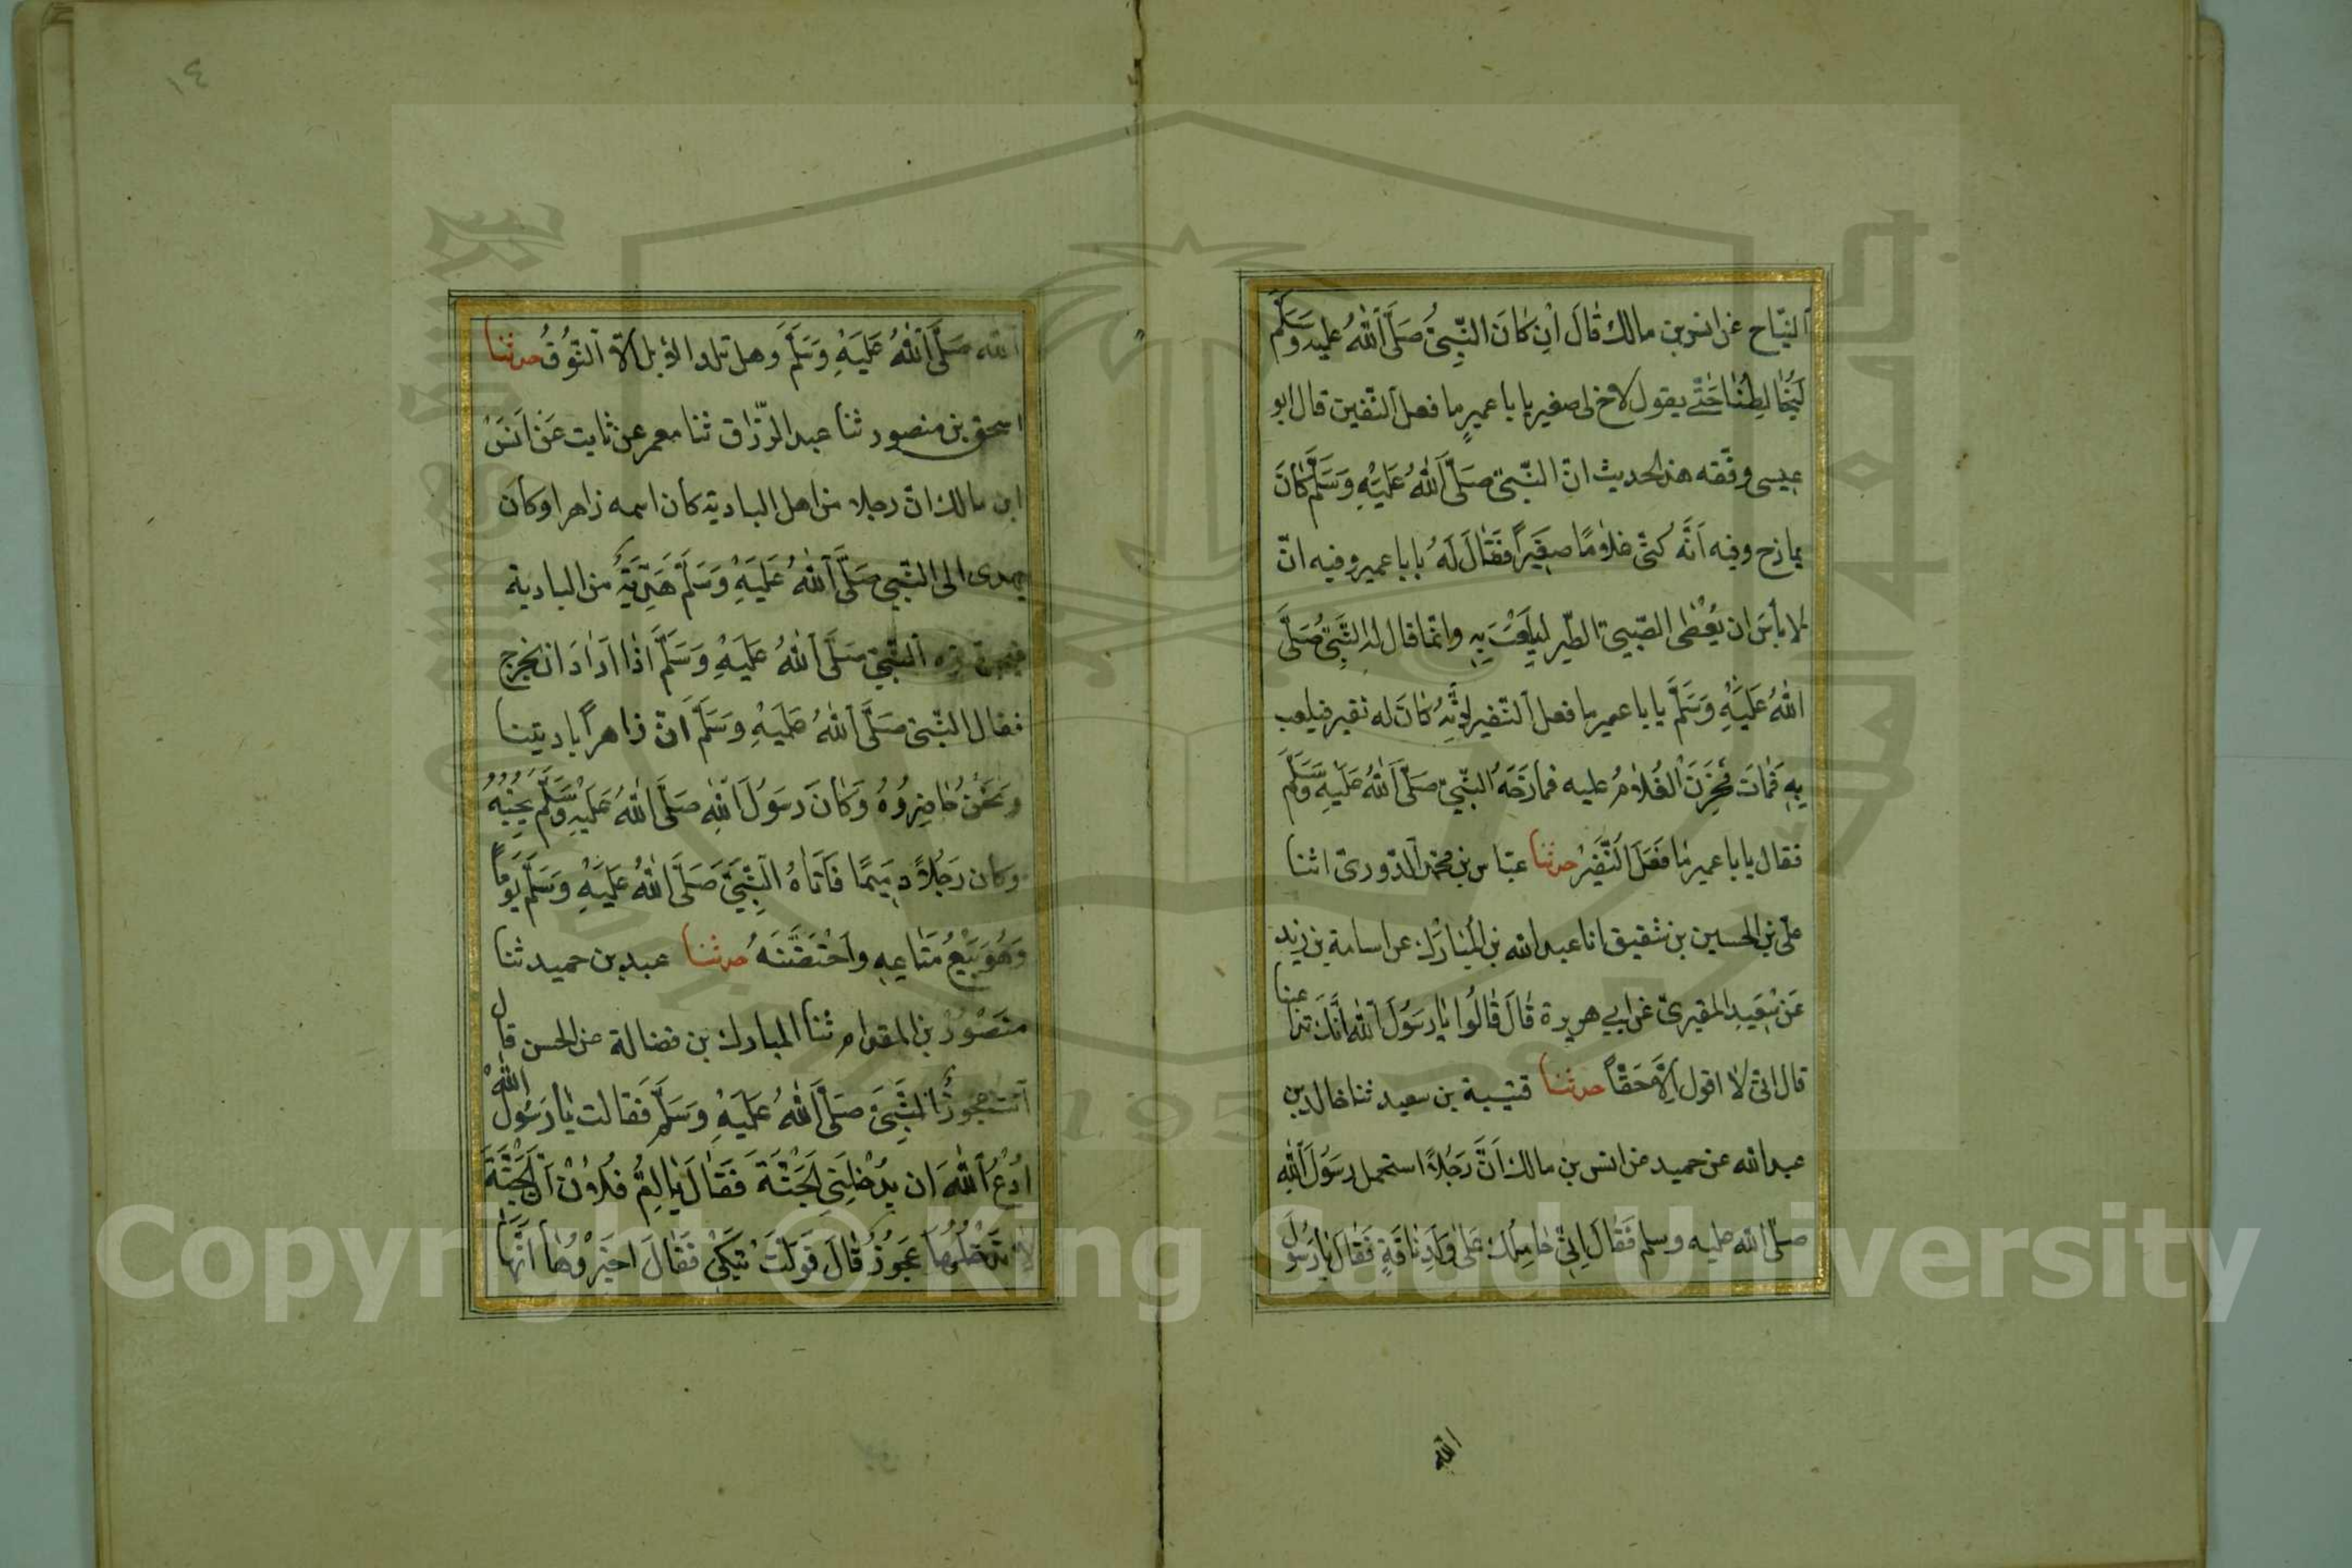 التيّاح عن انس بن مالك قَالَ اِن كَانَ النَّبِيُّ صَلَّى اللهُ عليه وَسَلَّم
لَيُخَالِطُنَا حَتّٰى يقول لاخ لى صغير يا با عميرٍ ما فعل النغير قال ابو
عيسى وفقه هذا الحديث انّ النّبىّ صَلَّى اللهُ عَلَيْهِ وَسَلَّمَ كَانَ
يمازح وفيه اَنَّه كنّى غلامًا صغِيَراً فَقَالَ لَهُ يا با عمير وفيه انّ
لا بأسَ ان يُعْطى الصّبىّ الطّير ليلعَبَ بِهِ وانّما قال له النَّبِىُّ صَلَّى
اللهُ عَلَيْهِ وَسَلَّمَ يا با عمير ما فعل النّغير لِاَنَّهُ كانَ له نغير فيلعب
بِهِ فَمَاتَ فَحَزِنَ الْغُلَامُ عليه فمازحَهُ النّبىّ صَلَّى اللهُ عَلَيْهِ وَسَلَّمَ
فقال يا با عمير مَا فَعَلَ النُّغَيْرُ حدثنا عبّاس بن محمّد الدّورىّ اثنا
علىّ بن الحسين بن شقيق انا عبد الله بن الْمُبَارَك عن اسامة بن زيد
عَن سَعِيدِ المقبرىّ عن ابي هريرة قَالَ قَالُوا يَا رَسُولَ اللهِ اَنَّكَ تداعبنا
قال انّى لا اقول اِلَّا حَقّاً حدثنا قتيبة بن سعيد ثنا خالد بن
عبد الله عن حميد عن انس بن مالك اَنَّ رَجُلاً استحمل رسَوُلَ اللهِ
صلّى الله عليه وسلم فَقَالَ اِنِّى حَامِلُكَ عَلىٰ وَلَدِ نَاقَةٍ فَقَالَ يَا رَسُولَ
الله
١٤
الله صَلَّى اللهُ عَلَيْهِ وَسَلَّمَ وَهل تلد الابل الّا النّوُقُ حدثنا
اسحق بن منصور ثنا عبد الرّزّاق ثنا معمر عن ثابت عَنْ اَنَسَ
ابن مالك انّ رجلا من اهل البادية كان اسمه زاهرا وكان
يهدى الى النّبىّ صَلَّى اللهُ عَلَيْهِ وَسَلَّمَ هَدِيَّةً من البادية
فيجهّزه النّبىّ صَلَّى اللهُ عَلَيْهِ وَسَلَّمَ اَذَا اَرَادَ ان يخرج
فقال النّبىّ صَلَّى اللهُ عَلَيْهِ وَسَلَّمَ اَنّ زاهراً باديتنا
ونَحْنُ حَاضِرُوُهُ وَكَانَ رَسوُلَ اللهِ صَلَّى اللهُ عَلَيْهِ وَسَلَّمَ يُحِبُّهُ
وكَان رَجُلاً دمِيَمًا فَأَتَاهُ النَّبِىَّ صَلَّى اللهُ عَلَيْهِ وَسَلَّمَ يَوْمًا
وَهُوَ يَبِيْعُ مَتَاعِهِ واحْتَضَنَهُ حدثنا عبد بن حميد ثنا
منصوُرُ بن المقدام ثنا المبارك بن فضالة عن الحسن قال
اتت عجوزٌ النَّبِىَّ صَلَّى اللهُ عَلَيْهِ وَسَلَّمَ فَقالت يَا رَسَوُلَ اللهِ
اُدْعُ اللهَ ان يُدْخِلَنِى الْجَنَّةَ فَقَالَ يَا اُمَّ فُلَانٍ اَنَّ الْجَنَّةَ
لا تَدْخُلُهَا عَجوُزٌ قَالَ فَوَلَّتْ تبَكِى فَقَالَ اخبِرُوُهَا اَنَّهَا
Copyright © King Saud University
1957